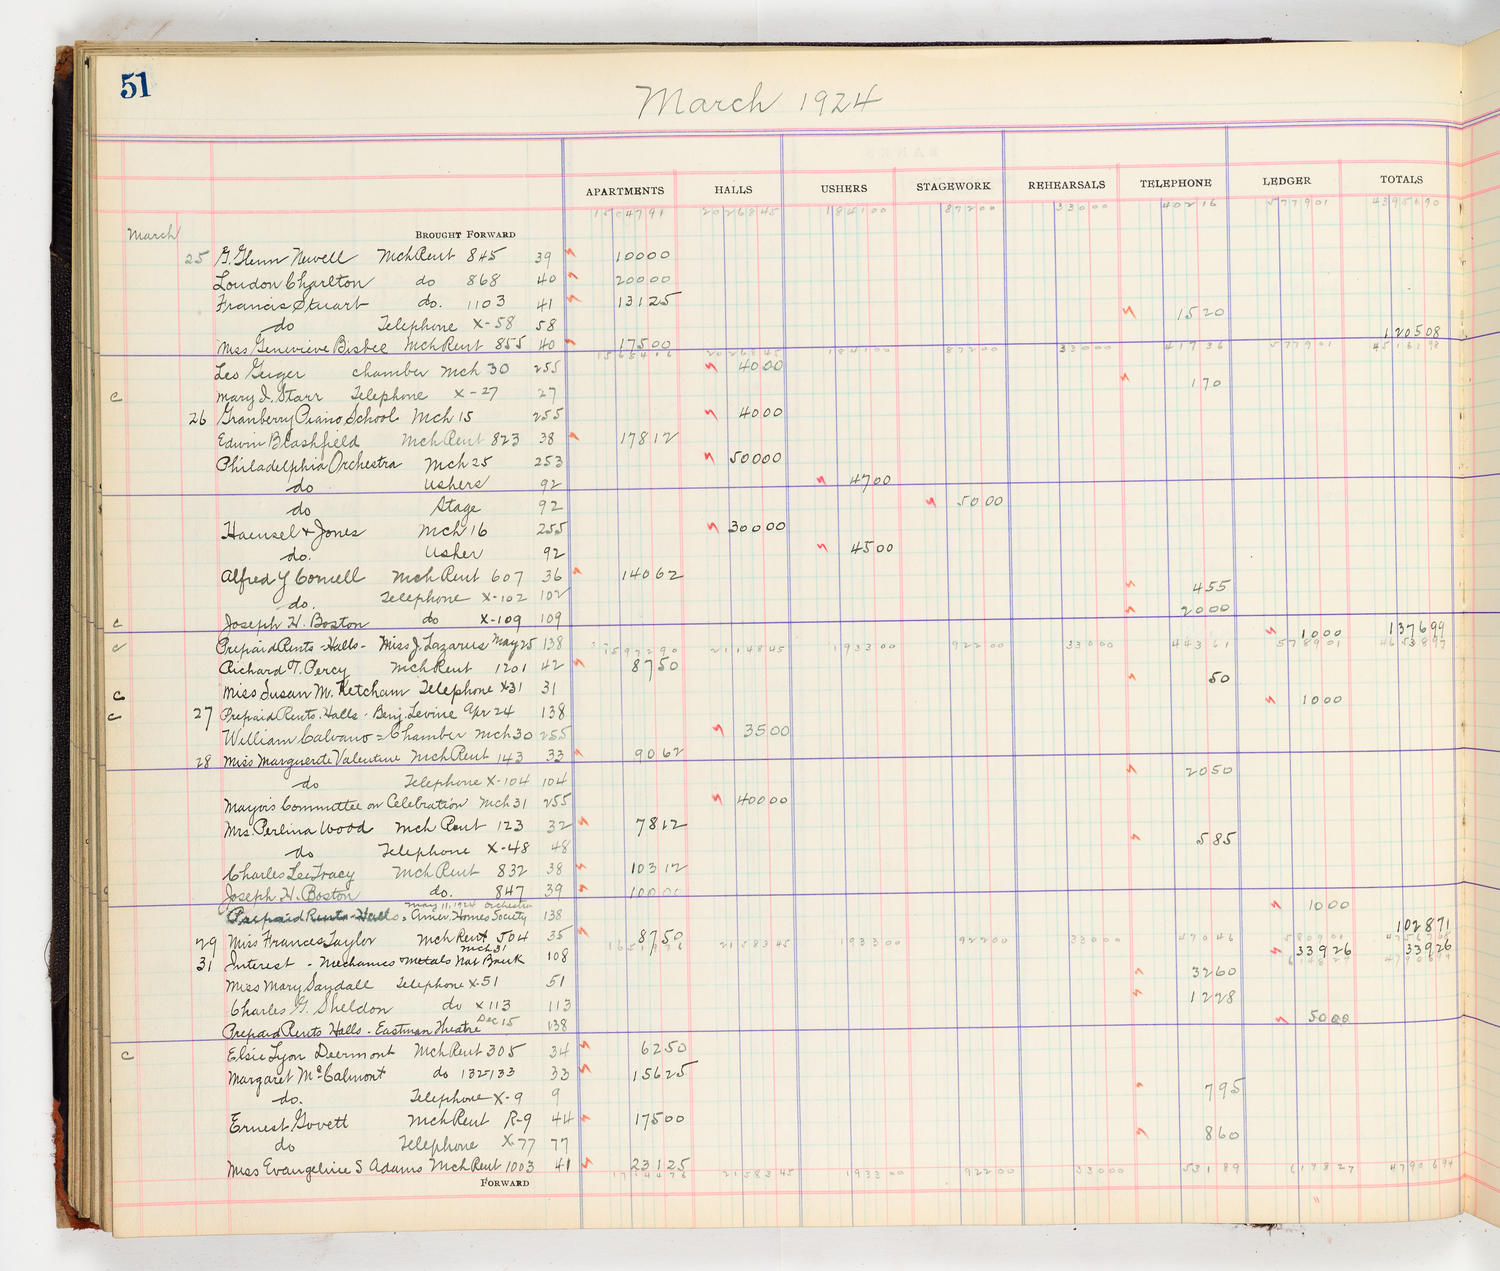 51
March 1924
APARTMENTS HALLS USHERS STAGEWORK REHEARSALS TELEPHONE LEDGER TOTALS
1504791 2026845 184100 87200 33000 40216 577901
March BROUGHT FORWARD
25 G. Glenn Newell Mch Rent 845 39 10000
Loudon Charlton do 868 40 20000
Francis Stuart do. 1103 41 13125
do Telephone X-58 58 1520
Miss Genevieve Bisbee Mch Rent 855 40 17500 120508
1565416 2026845 184100 87200 33000 41736 577901
Leo Geiger chamber Mch 30 255 4000
c Mary I. Starr Telephone X-27 27 170
26 Granberry Piano School Mch 15 255 4000
Edwin Blashfield Mch Rent 823 38 17812
Philadelphia Orchestra Mch 25 253 50000
do Ushers 92 4700
do Stage 92 5000
Haensel & Jones Mch 16 255 30000
do. Usher 92 4500
Alfred Y Cornell Mch Rent 607 36 14062
do. Telephone X-102 102 455
c Joseph H. Boston do X-109 109 2000
c Prepaid Rents-Halls- Miss J. Lazarus May 25 138 1000 137699
1597290 2114845 193300 92200 33000 44361 578901 4653897
Richard T. Percy Mch Rent 1201 42 8750
c Miss Susan M. Ketcham Telephone X31 31 50
c 27 Prepaid Rents. Halls - Benj. Levine Apr 24 138 1000
William Calvano = Chamber Mch 30 255 3500
28 Miss Marguerite Valentine Mch Rent 143 33 9062
do Telephone X-104 104 2050
Mayor's Committee on Celebration Mch 31 255 40000
Mrs. Perlina Wood Mch Rent 123 32 7812
do Telephone X-48 48 585
Charles Lee Tracy Mch Rent 832 38 10312
Joseph H. Boston do. 847 39 10000
May 11, 1924 Orchestra
Prepaid Rents-Halls = Amer. Homes Society 138 1000
29 Miss Frances Taylor Mch Rent 504 35 8750 102871
2158345 193300 92200 33000 47046 580901
Mch 31
31 Interest - Mechanics & Metals Nat Bank 108 33926 33926
Miss Mary Sandall Telephone X-51 51 3260
Charles G. Sheldon do X113 113 1228
Prepaid Rents Halls - Eastman Theatre Dec 15 138 5000
c Elsie Lyon Deermont Mch Rent 305 34 6250
Margaret McCalmont do 132-133 33 15625
do. Telephone X-9 9 795
Ernest Govett Mch Rent R-9 44 17500
do Telephone X-77 77 860
Miss Evangeline S Adams Mch Rent 1003 41 23125
FORWARD 2158345 193300 92200 33000 53189 617827 4790694